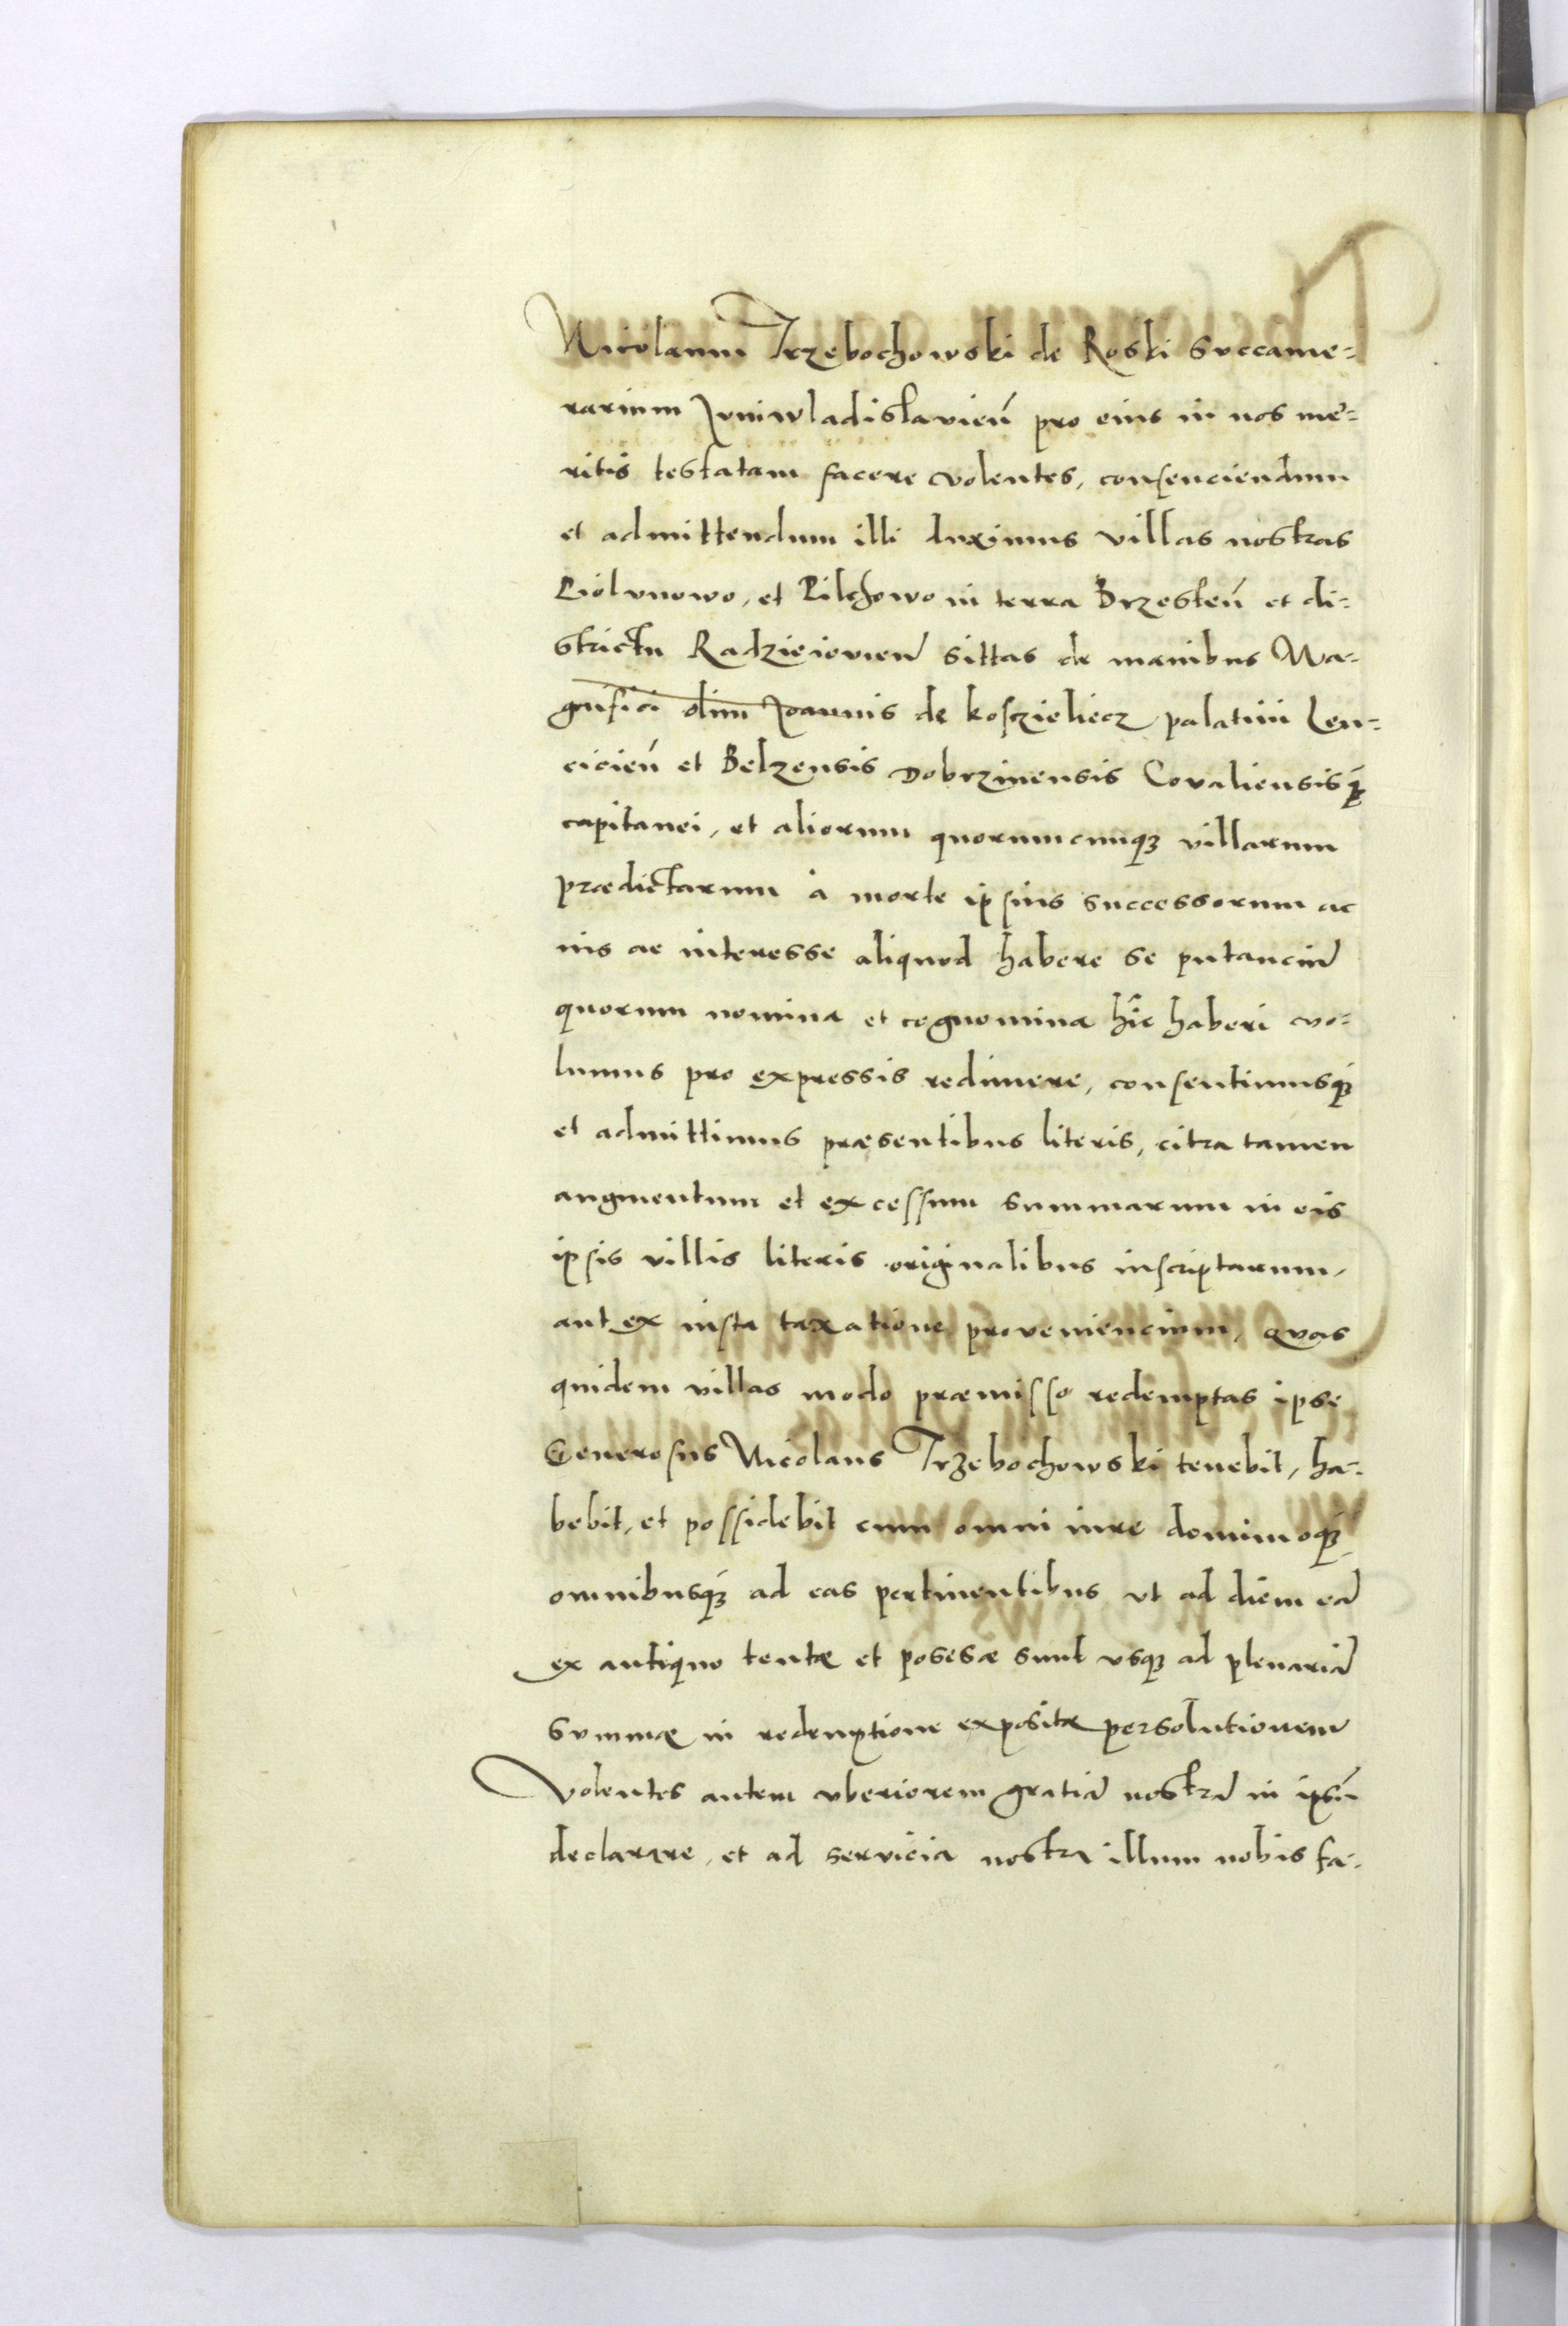 Nicolaum Trzebochowski de Roski succame-
rarium Juniwladislavien̄ pro eius in nos me-
ritis testatam facere volentes, consenciendum
et admittendum illi duximus villas nostras
et Pilchowo in terra Brzesten̄ et di-
strictu Radzieiovien̄ sittas de manibus Ma-
gnifici olim Joannis de Kosczieliecz palatini Len-
cicien̄ et Belzensis Dobrzinensis Covaliensisq₃
capitanei, et aliorum quorumcunq₃ villarum
prædictarum à morte ipsius successorum ac
ius ac interesse aliquod habere se putanciū
quorum nomina et cognomina hîc haberi vo-
lumus pro expressis redimere, consentimusq₃
et admittimus præsentibus literis, citra tamen
augmentum et excessum summarum in eis
ipsis villis literis originalibus inscriptarum,
aut ex iusta taxatione proveniencium, quas
quidem villas modo præmisso redemptas ipse
Generosus Nicolaus Trzebochowski tenebit, ha-
bebit, et possidebit cum omni iure dominioq₃
omnibusq₃ ad eas pertinentibus ut ad diem eā
ex antiquo tentæ et posesæ sunt usq₃ ad plenariā
summæ in redemptione expositæ persolutionem
Volentes autem uberiorem gratiā nostrā in ipsū
declarare, et ad servicia nostra illum nobis fa-